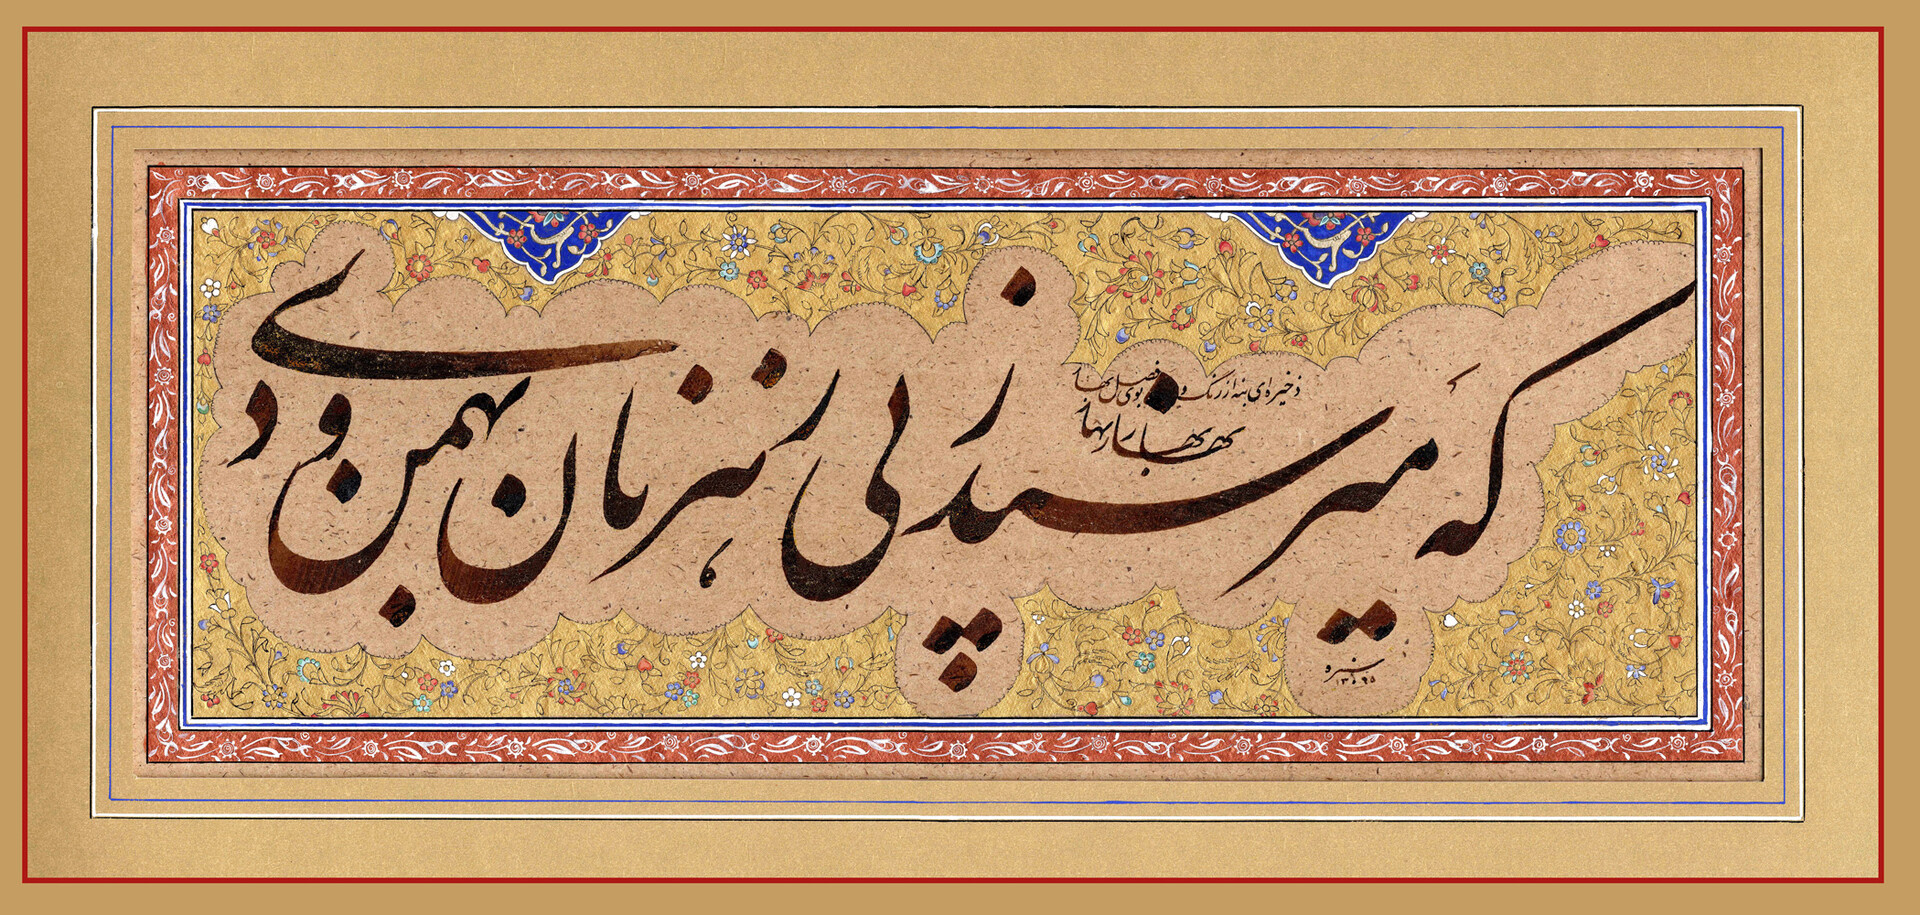 ذخیره‌ای بنه از رنگ و بوی فصل بهار
که میرسند ز پی رهزنان بهمن و دی
۱۳۹۵